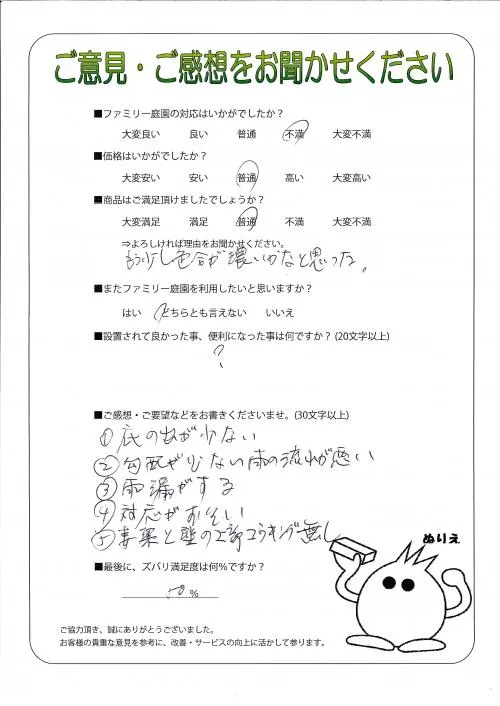 ご意見・ご感想をお聞かせください
■ファミリー庭園の対応はいかがでしたか？
大変良い 良い 普通 不満 大変不満
■価格はいかがでしたか？
大変安い 安い 普通 高い 大変高い
■商品はご満足頂けましたでしょうか？
大変満足 満足 普通 不満 大変不満
⇒よろしければ理由をお聞かせください。
もう少し色合が濃いかなと思った。
■またファミリー庭園を利用したいと思いますか？
はい どちらとも言えない いいえ
■設置されて良かった事、便利になった事は何ですか？(20文字以上)
？
■ご感想・ご要望などをお書きくださいませ。(30文字以上)
① 底の出が少ない
② 勾配が少ない雨の流れが悪い
③ 雨漏がする
④ 対応がおそい
⑤ と壁の上部コーキング無し
■最後に、ズバリ満足度は何％ですか？
50%
ぬりえ
ご協力頂き、誠にありがとうございました。
お客様の貴重な意見を参考に、改善・サービスの向上に活かして参ります。